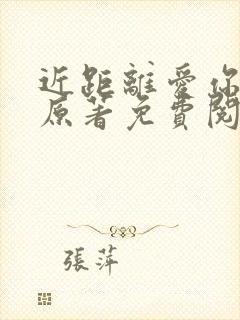 近距離愛你
原著免費閱
張萍